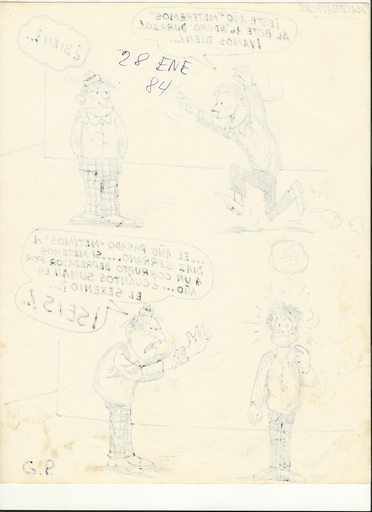 ¡ESTE AÑO "METEREMOS"
AL BOTE AL NEGRO DURAZO!
¡VAMOS BIEN!...
¿BIEN?...
28 ENE
84
...EL AÑO PASADO "METIMOS" A
DIAZ SERRANO.....SI METEMOS
A UN CORRUPTO DEPREDADOR POR
AÑO...¿CUANTOS SUMAN EN
EL SEXENIO?...
¡SEIS!..
G.P